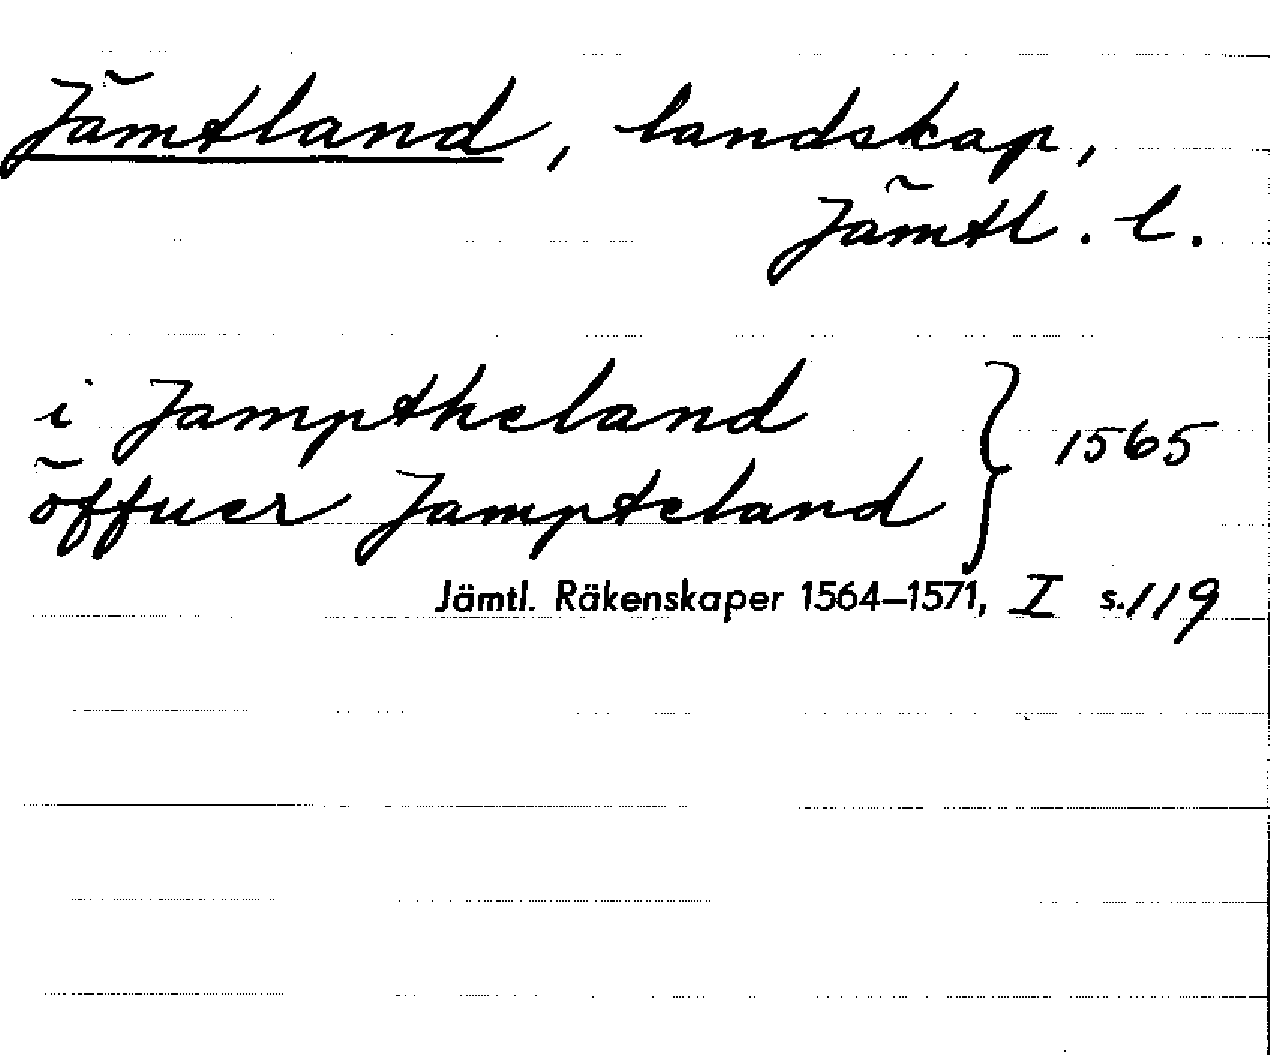 Jämtland, landskap,
Jämtl. l.
i Jamptheland
öffuer Jampteland } 1565
Jämtl. Räkenskaper 1564–1571, I s. 119